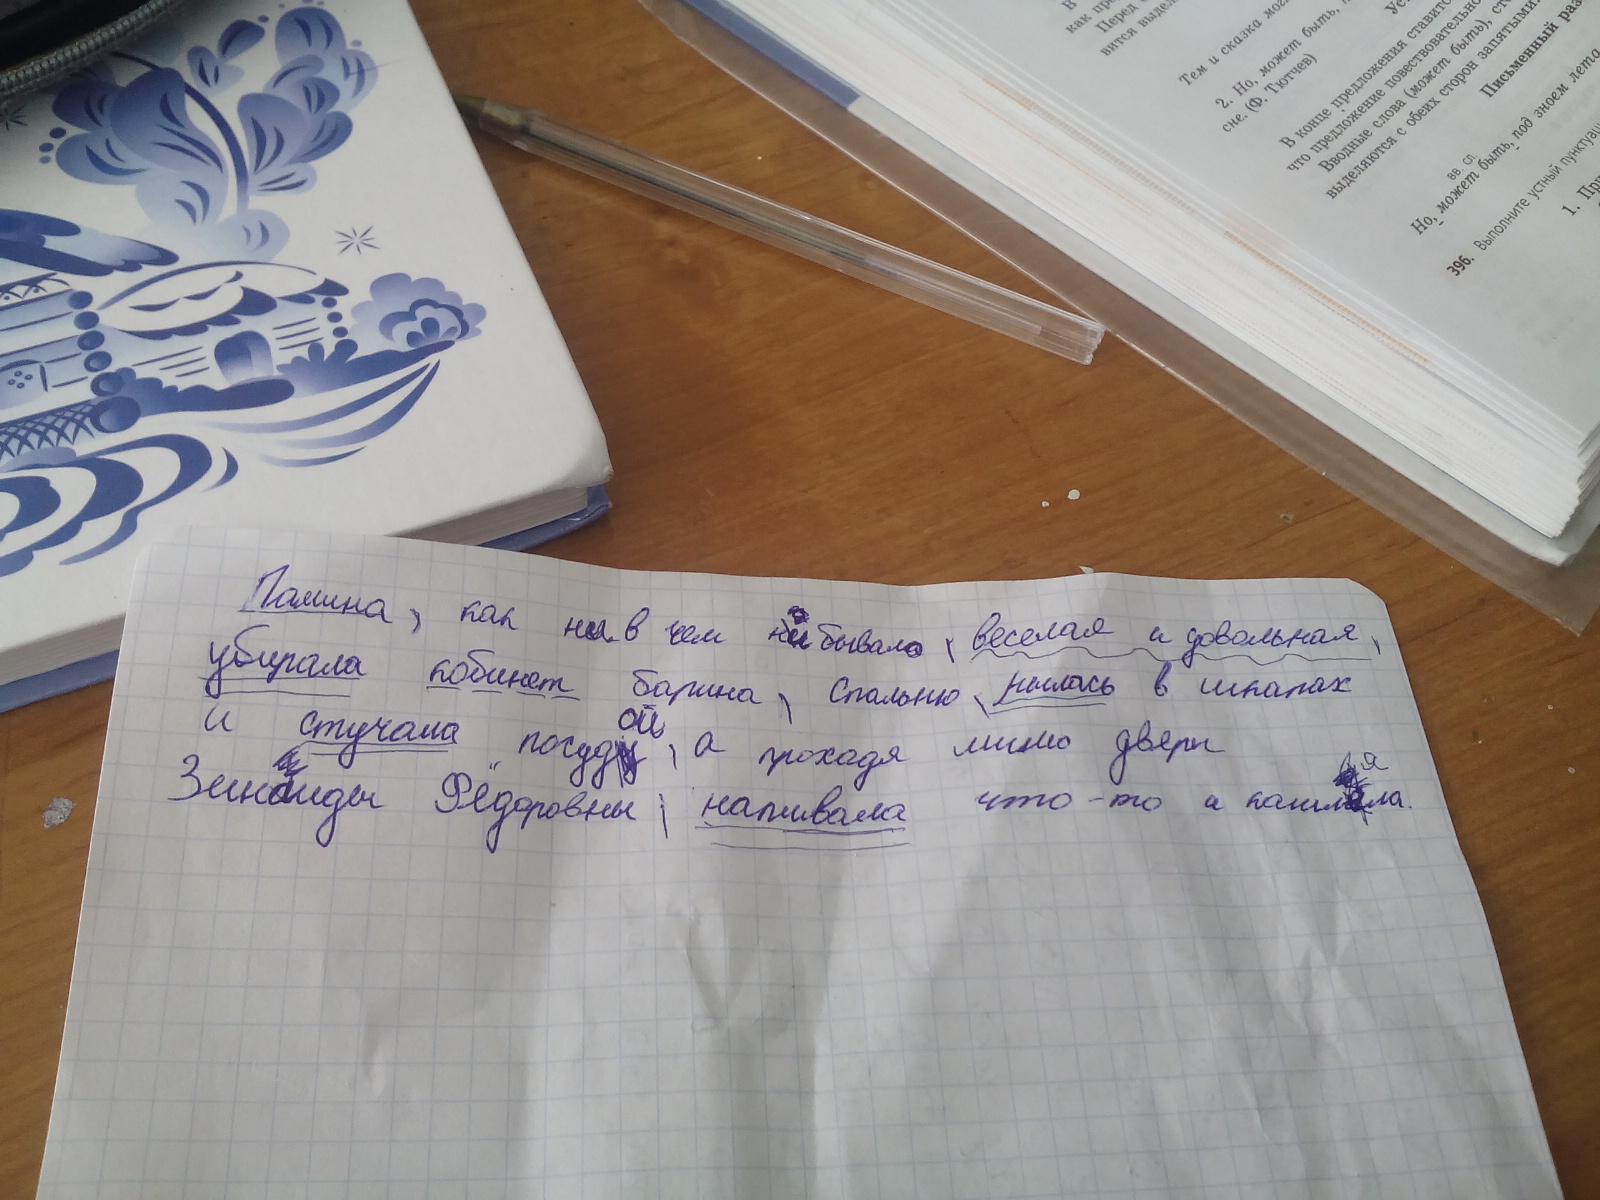 В
как пре
Перед с
вится выдел
Тем и сказка мог
2. Но, может быть,
сне. (Ф. Тютчев)
Ус
В конце предложения ставитс
что предложение повествовательно
Вводные слова (может быть), сто
выделяются с обеих сторон запятыми.
Письменный раз
вв сл
Но, может быть, под зноем лета
396. Выполните устный пунктуац
1. При
Памина, как ни в чем не бывало, веселая и довольная,
убирала кобинет барина, спальню, рылась в шкапах
и стучала посудой, а проходя мимо двери
Зинаиды Фёдоровны, напивала что-то и кашляла.